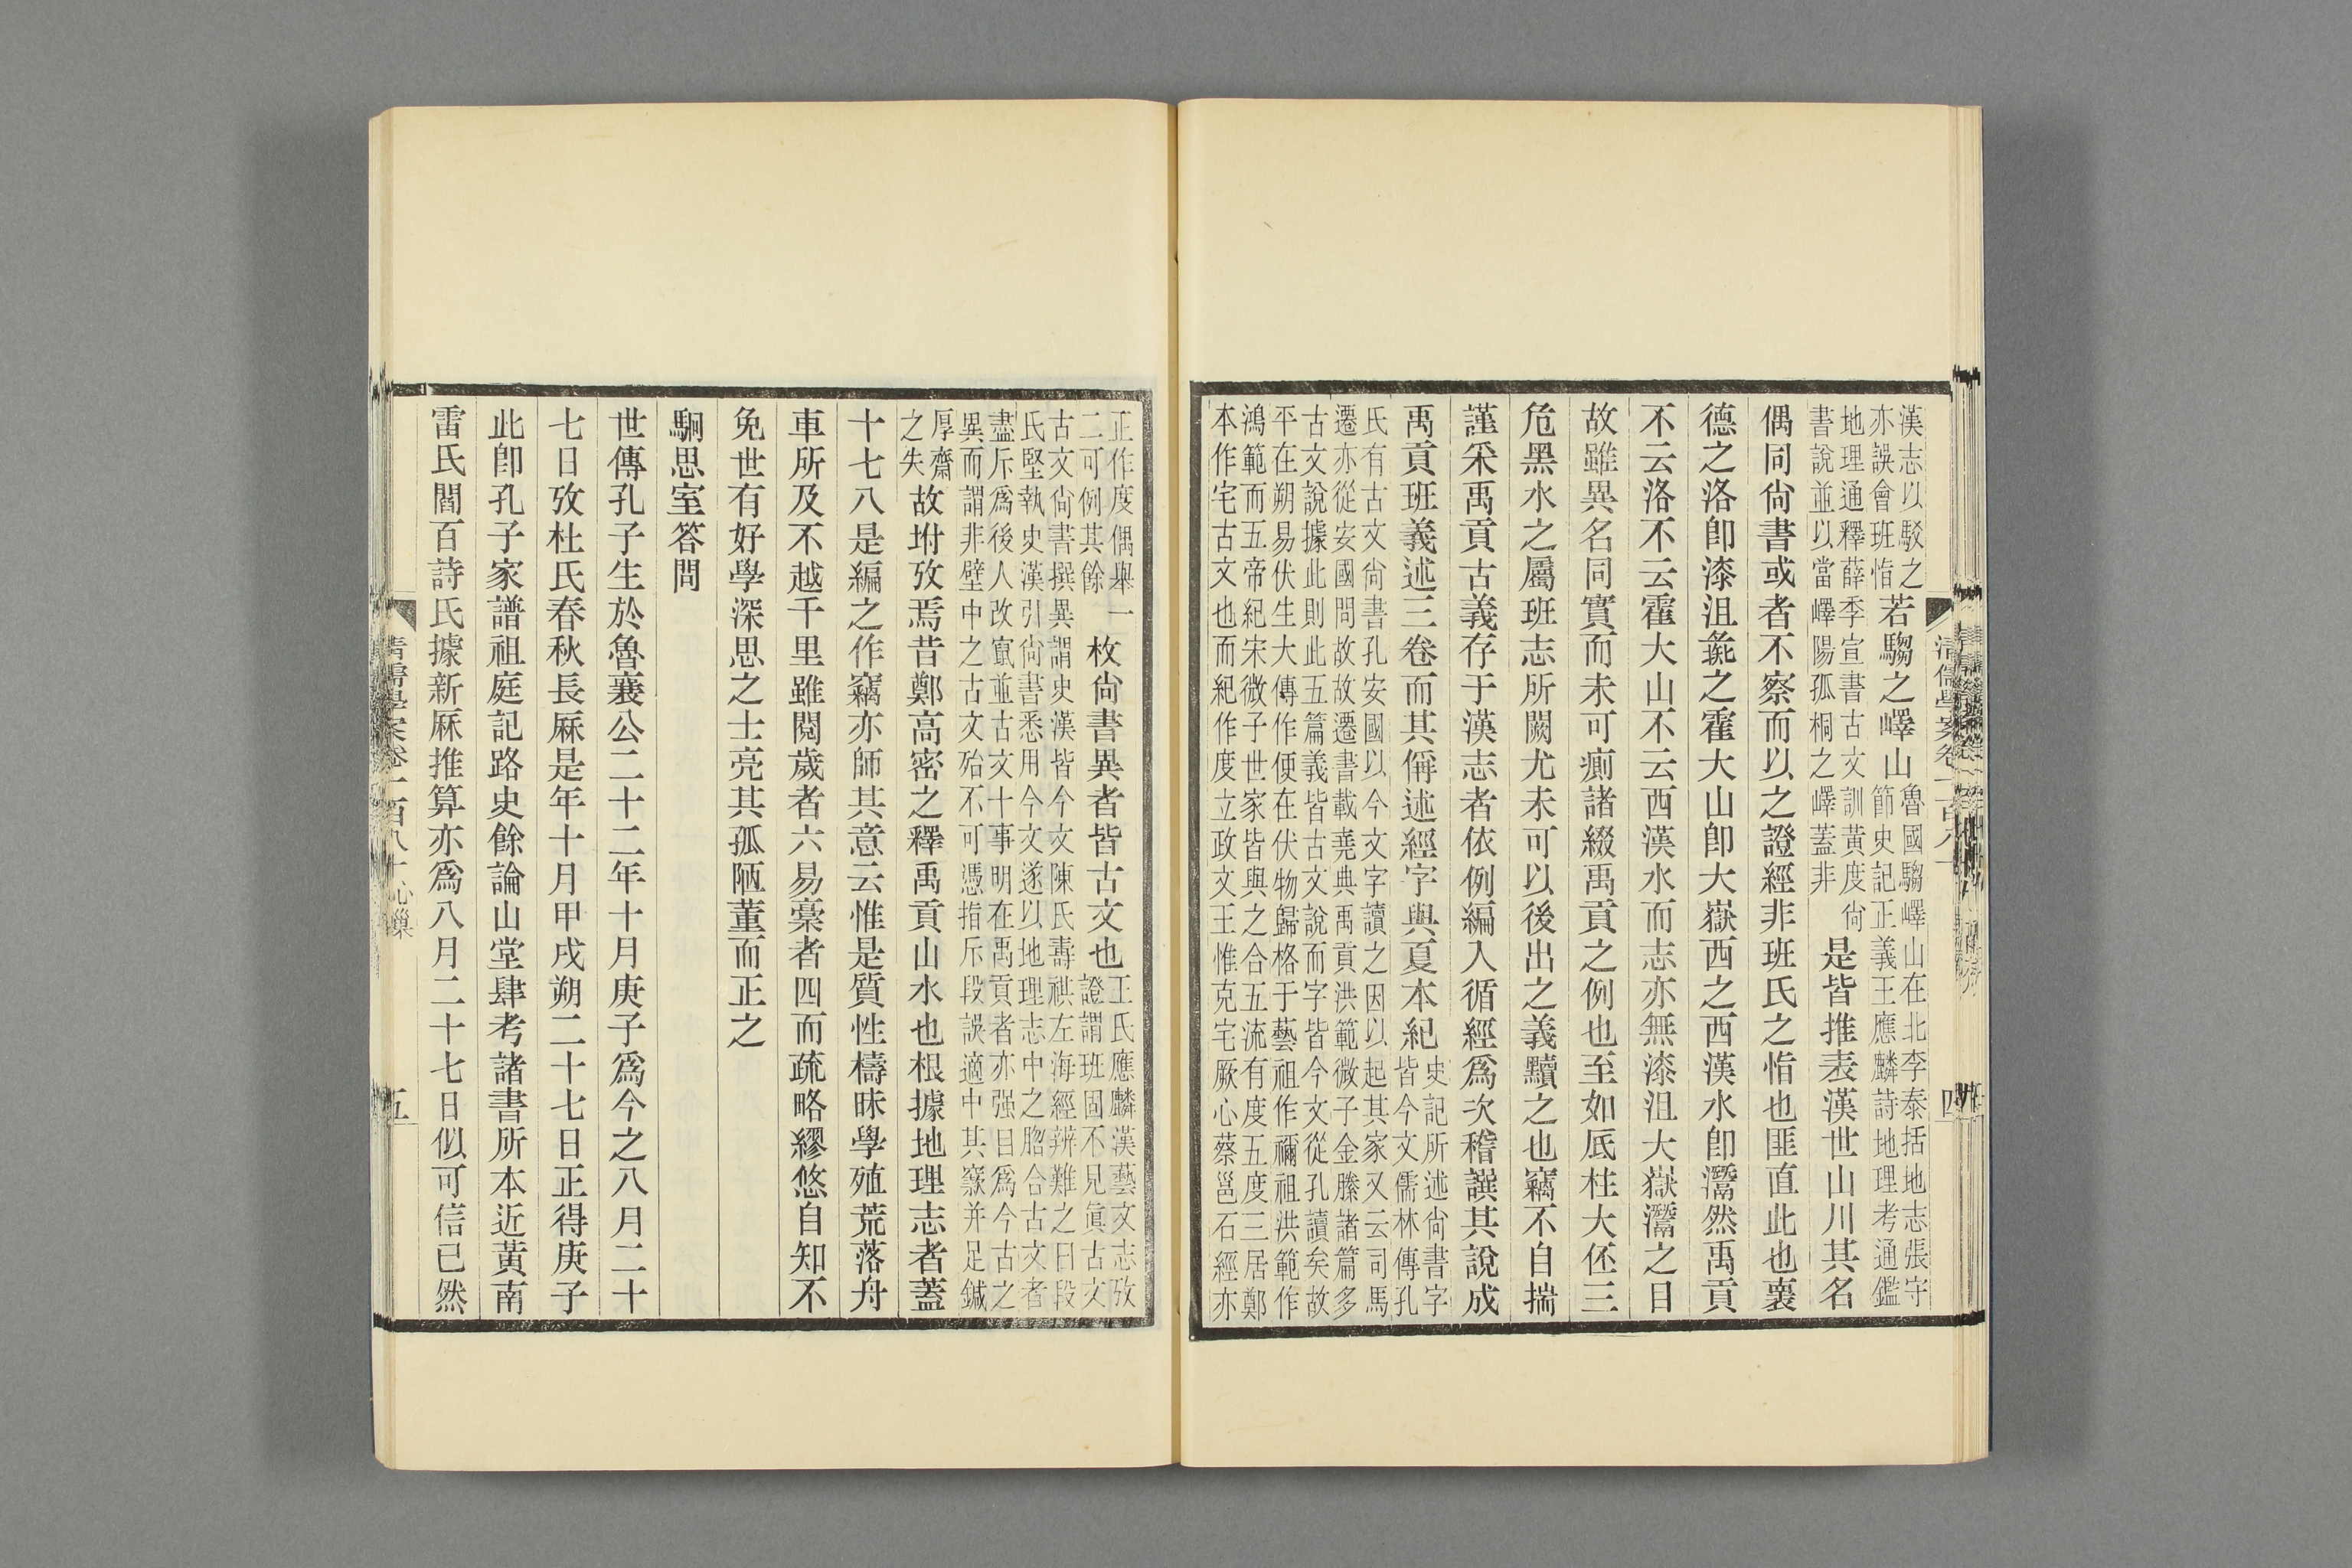 漢志以駁之
亦誤會班恉
若騶之嶧山
魯國騶嶧山在北李泰括地志張守
節史記正義王應麟詩地理考通鑑
地理通釋薛季宣書古文訓黃度尙
書說並以當嶧陽孤桐之嶧蓋非
是皆推表漢世山川其名
偶同尙書或者不察而以之證經非班氏之恉也匪直此也襄
德之洛卽漆沮彘之霍大山卽大嶽西之西漢水卽灊然禹貢
不云洛不云霍大山不云西漢水而志亦無漆沮大嶽灊之日
故雖異名同實而未可瘹諸綴禹貢之例也至如厎柱大伾三
危黑水之屬班志所闕尤未可以後出之義黷之也竊不自揣
謹采禹貢古義存于漢志者依例編入循經爲次稽譔其說成
禹貢班義述三卷而其偁述經字與夏本紀
史記所述尙書字
皆今文儒林傳孔
氏有古文尙書孔安國以今文字讀之因以起其家又云司馬
遷亦從安國問故故遷書載堯典禹貢洪範微子金縢諸篇多
古文說據此則此五篇義皆古文說而字皆今文從孔讀矣故
平在朔易伏生大傳作便在伏物歸格于藝祖作禰祖洪範作
鴻範而五帝紀宋微子世家皆與之合五流有度五度三居鄭
本作宅古文也而紀作度立政文王惟克宅厥心蔡邕石經亦
清儒學案卷一百八十
四
正作度偶舉一
二可例其餘
枚尙書異者皆古文也
王氏應麟漢藝文志攷
證謂班固不見眞古文
古文尙書撰異謂史漢皆今文陳氏壽祺左海經辨難之曰段
氏堅執史漢引尙書悉用今文遂以地理志中之脗合古文者
盡斥爲後人改竄並古文十事明在禹貢者亦强目爲今古之
異而謂非壁中之古文殆不可憑指斥段誤適中其窾并足鍼
厚齋
之失
故坿攷焉昔鄭高密之釋禹貢山水也根據地理志者蓋
十七八是編之作竊亦師其意云惟是質性檮昧學殖荒落舟
車所及不越千里雖閱歲者六易稾者四而疏略繆悠自知不
免世有好學深思之士亮其孤陋董而正之
駉思室答問
世傳孔子生於魯襄公二十二年十月庚子爲今之八月二十
七日攷杜氏春秋長厤是年十月甲戌朔二十七日正得庚子
此卽孔子家譜祖庭記路史餘論山堂肆考諸書所本近黃南
雷氏閻百詩氏據新厤推算亦爲八月二十七日似可信已然
清儒學案卷一百八十 心巢
五